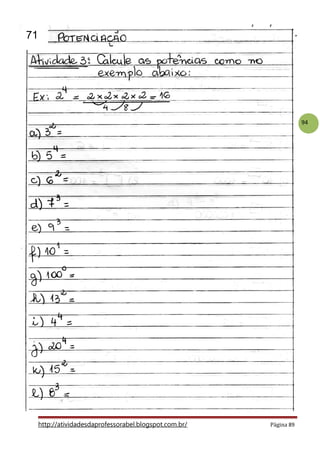 71 POTENCIAÇÃO
Atividade 3: Calcule as potências como no
exemplo abaixo:
Ex: 2⁴ = 2×2×2×2 = 16
4 8
94
a) 3² =
b) 5⁴ =
c) 6² =
d) 7³ =
e) 9³ =
f) 10¹ =
g) 100⁰ =
h) 13² =
i) 4⁴ =
j) 20⁴ =
k) 15² =
l) 8³ =
http://atividadesdaprofessorabel.blogspot.com.br/ Página 89